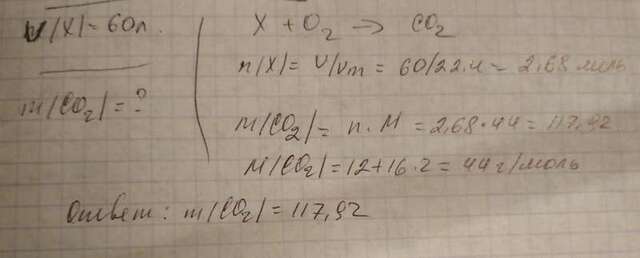 V(X) = 60л.
m(CO₂) = ?
X + O₂ → CO₂
n(X) = V/Vm = 60/22.4 = 2,68 моль
m(CO₂) = n · M = 2,68 · 44 = 117,92
M(CO₂) = 12 + 16 · 2 = 44 г/моль
Ответ: m(CO₂) = 117,92